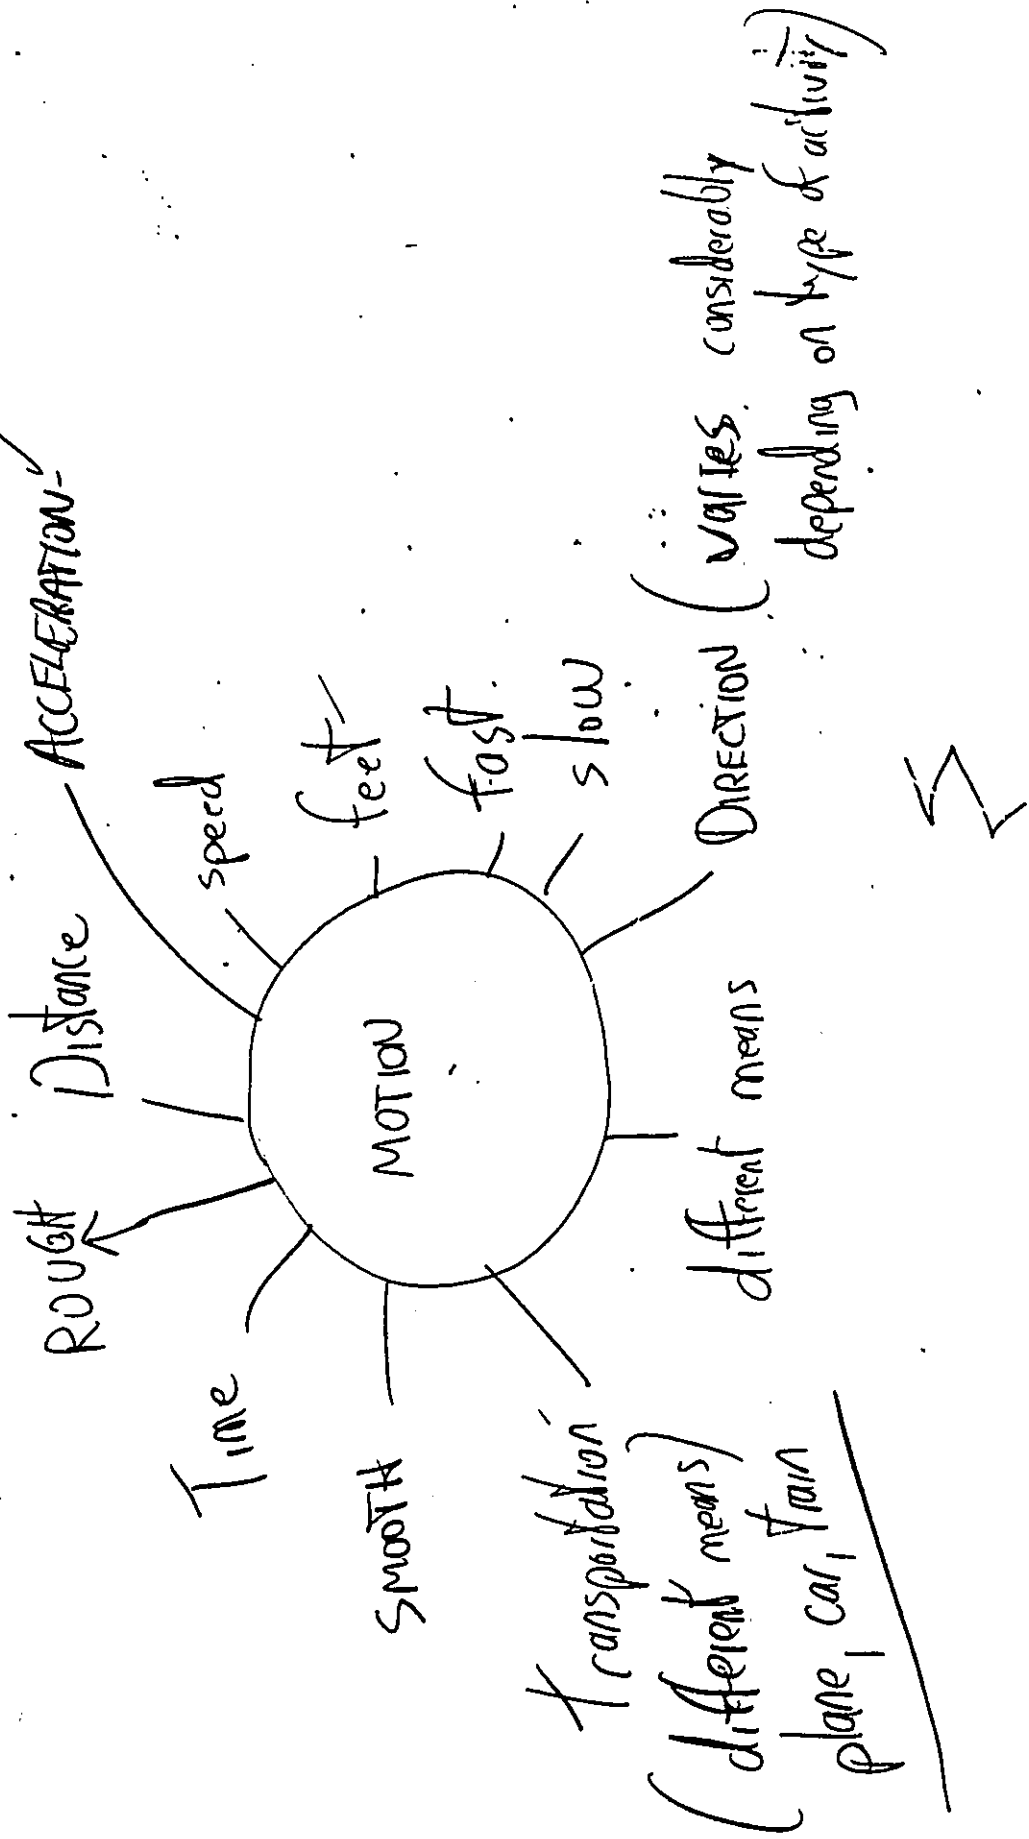 MOTION
ROUGH
Distance
ACCELERATION-
speed
feet
fast
slow
DIRECTION (varies considerably
depending on type of activity)
different means
transportation
(different means)
plane, car, train
SMOOTH
Time